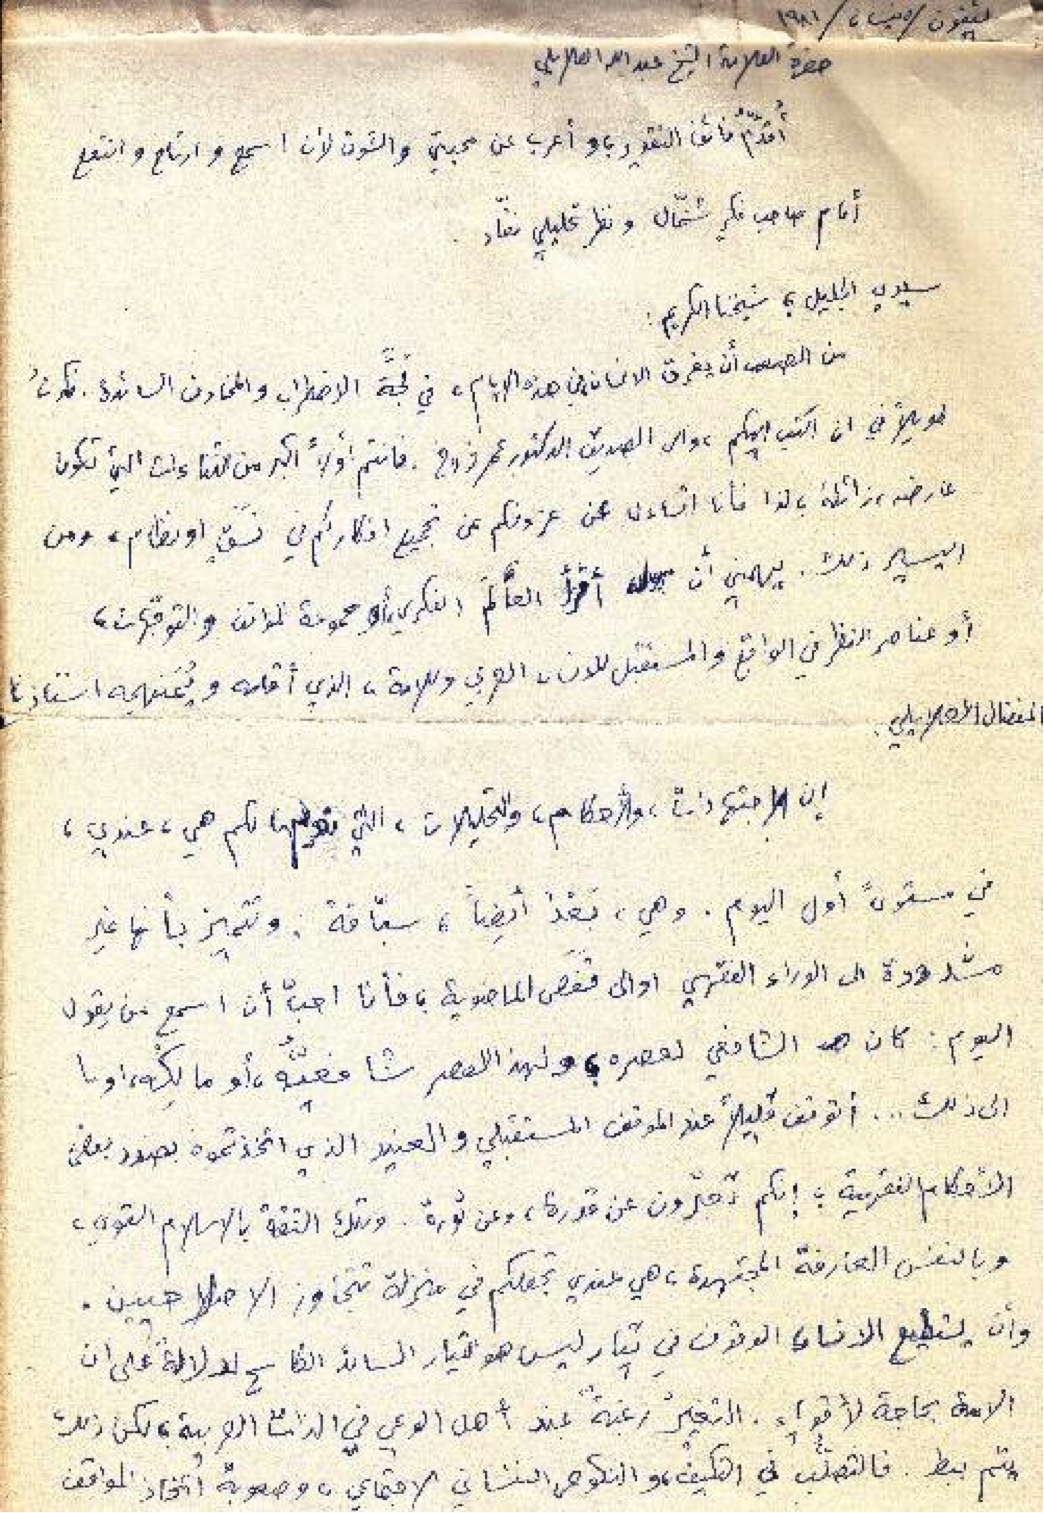 بتغرين / نيسان / ١٩٨١
حضرة العلامة الشيخ عبد الله العلايلي
أُقدّمُ فائق التقدير، وأعرب عن محبتي والشوق لأن اسمع وارتاح وانتفع
أمام صاحب فكرٍ شمّال ونظر تحليلي نقّاد.
سيدي الجليل، شيخنا الكريم:
من الصعب أن يغرق الانسان في هذه الايام، في لُجَّة الاضطراب والمخاوف السائدة. فكرتُ
طويلاً في ان اكتب اليكم، والى الصديق الدكتور عمر فروخ. فانتم أولاً اكبر من التساؤلات التي تكون
عارضة، زائلة، لذا فأنا اتساءل عن عزوفكم عن تجميع افكاركم في نَسَقٍ او نظام، ومن
اليسير ذلك. يهمني أن أقرأ العالَمَ الفكري، أو مجموعة المواقف والتوجّهات،
أو عناصر النظر في الواقع والمستقبل للانسان العربي وللامة، الذي أقامه ويُمَنهِجه استاذنا
المفضال العلايلي.
إن الاجتهادات، والأحكام، والتحليلات، التي لكم هي، عندي،
في مستوىً أول اليوم. وهي، بَعْدُ أيضاً، سبّاقة. وتتميز بأنها غير
مشدودة الى الوراء الفقهي او الى قفص الماضوية، فأنا احبّ أن اسمع من يقول
اليوم: كان الشافعي لعصره، ولهذا العصر شافعيُّه، أو مالِكُه، او ما
الى ذلك... أتوقف قليلاً عند الموقف المستقبلي والعنيد الذي اتخذتموه بصدد بعض
الأحكام الفقهية، إنكم تُعبّرون عن قدرة، وعن ثورة. وتلك الثقة بالاسلام القوي،
وبالنفس العارفة المجتهدة، هي عندي تجعلكم في منزلة تتجاوز الاصلاحيين.
وأن يستطيع الانسان الوقوف في تيار ليس هو التيار السائد الكاسح لدلالة على ان
الامة بحاجة لأقوياء. التغير رغبةٌ عند أهل الوعي في الذات العربية، لكن ذلك
يتم ببطء. فالتصلّب في التكيف، والنكوص النفساني الاجتماعي، وصعوبة اتخاذ المواقف